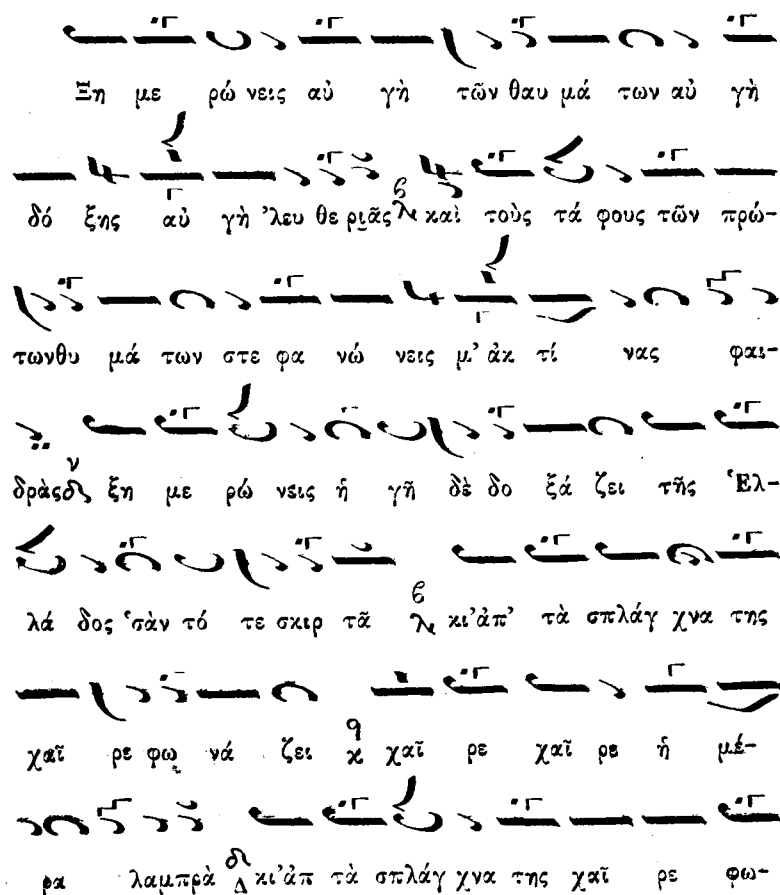 Ξη με ρώ νεις αὐ γὴ τῶν θαυ μά των αὐ γὴ
δό ξης αὐ γὴ ’λευ θε ριᾶς καὶ τοὺς τά φους τῶν πρώ-
τωνθυ μά των στε φα νώ νεις μ’ ἀκ τί νας φαι-
δρὰς ξη με ρώ νεις ἡ γῆ δὲ δο ξά ζει τῆς Ἑλ-
λά δος ‘σὰν τό τε σκιρ τᾶ κι’ ἀπ’ τὰ σπλάγ χνα της
χαῖ ρε φω νά ζει χαῖ ρε χαῖ ρε ἡ μέ-
ρα λαμπρὰ κι’ ἀπ τὰ σπλάγ χνα της χαῖ ρε φω-